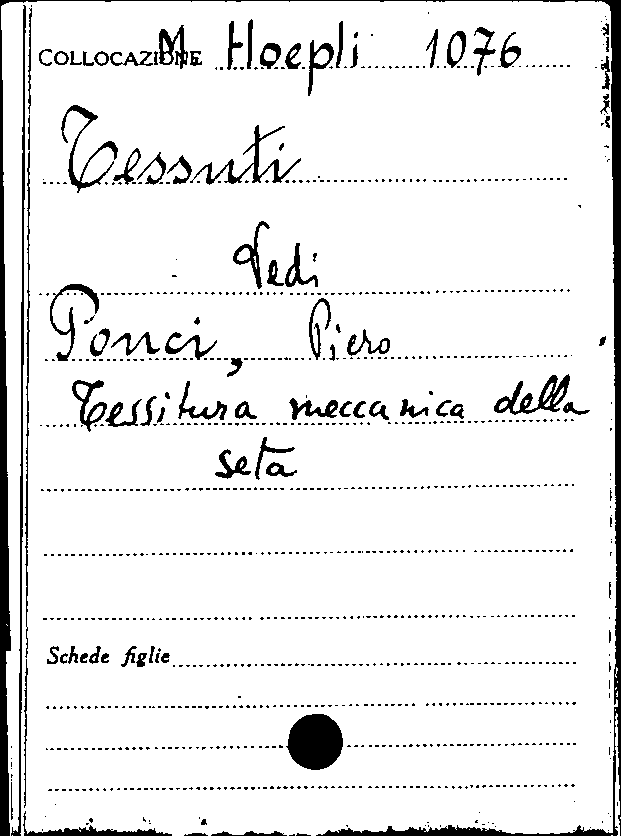 COLLOCAZIONE M Hoepli 1076
Tessuti
Vedi
Ponci, Piero
Tessitura meccanica della
seta
Schede figlie